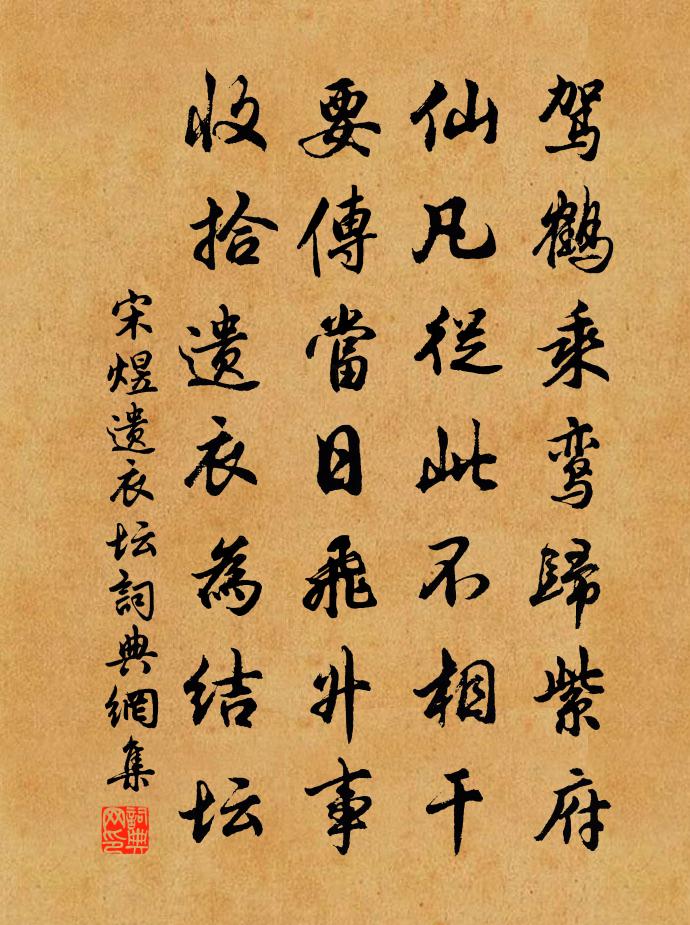 驾鹤乘鸾歸紫府
仙凡從此不相干
要傳當日飛升事
收拾遗衣為结坛
宋煜遗衣坛詞典網集
詞典网印